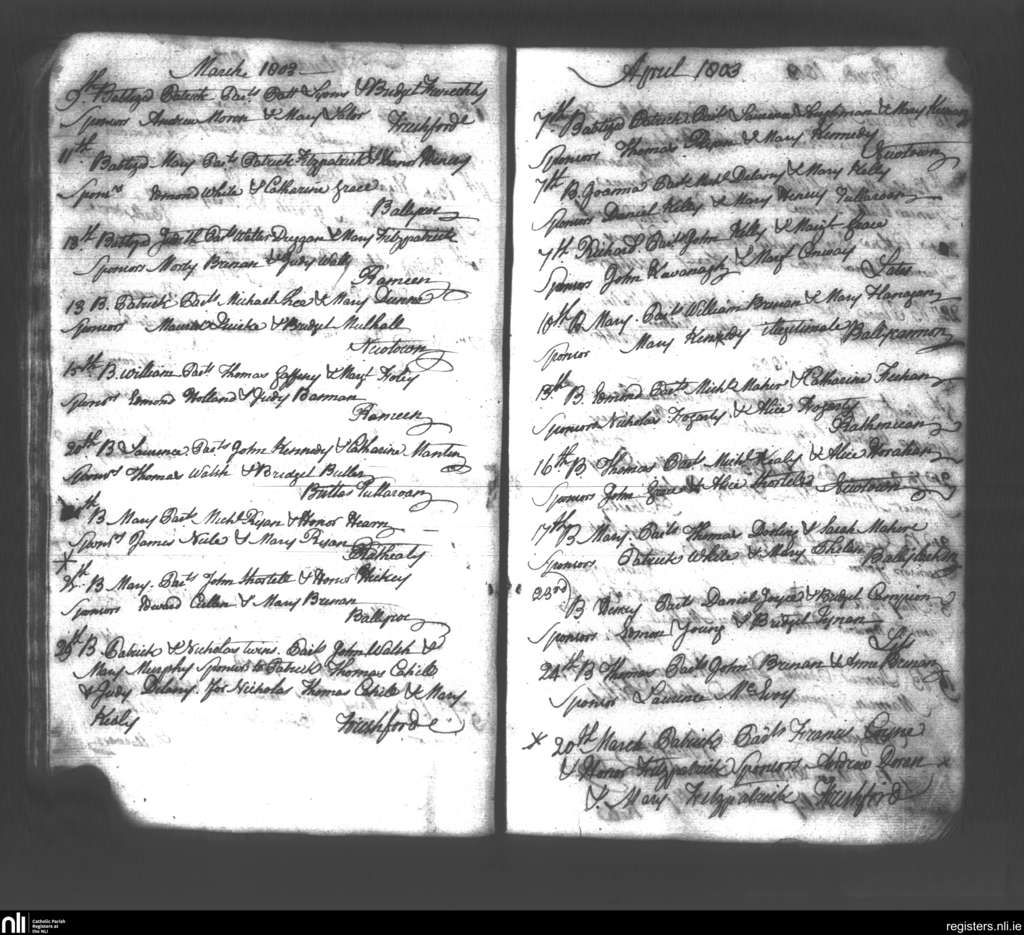 March 1803
9th Baptzd Patrick Par.ts Patt Lyons & Bridget
Sponsors Andrew Moran & Mary Freshford
11th Baptzd Mary Par.ts Patrick Fitzpatrick & Honor
Spon.rs Edmond White & Catharine Grace
Ballyroe
13th Baptzd Judith Par.ts Walter Duggan & Mary Fitzpatrick
Sponsors Morty Brenan & Judy Wall
Rameen
13 B. Patrick Par.ts Michael & Mary Dunne
Sponsors Maurice & Bridget Mulhall
Newtown
15th B. William Par.ts Thomas Gaffeny & Marg.t Foley
Sponsors Edmond Holland & Judy Bannan
Rameen
20th B Laurence Par.ts John Kennedy & Catharine Manten
Spons.rs Thomas Walsh & Bridget Butler
Butlers Tullaroan
th B Mary Par.ts Mich.l Ryan & Honor Hearn
Spon.rs James Neile & Mary Ryan Rathealy
X
th B Mary. Par.ts John Shortell & Honor Hickey
Sponsors Edward Cullen & Mary Brenan
Ballyroe
25th B Patrick & Nicholas twins. Par.ts John Walsh &
Mary Murphy Sponsors to Patrick Thomas Cahill
& Judy Delany. for Nicholas Thomas Cahill & Mary
Kealy Freshford
April 1803
7th Baptzd Patrick Par.ts & Mary
Sponsors Thomas Ryan & Mary Kennedy
Newtown
7th B Joanna Par.ts Mich.l Delany & Mary Kelly
Sponsors Daniel Kelly & Mary Tullaroan
7th Richard Par.ts John Kelly & Marg.t Grace
Sponsors John Kavanagh & Marg.t Conway
Lates
10th B Mary. Par.ts William Brenan & Mary Flanagan
Sponsor Mary Kennedy Illegitimate Ballycammon
13th B. Edmond Par.ts Mich.l Maher & Catharine Feehan
Sponsors Nicholas Fogarty & Alice Fogarty
Rathmoican
16th B Thomas Par.ts Mich.l Kealy & Alice Horahan
Sponsors John Grace & Alice Shortell Newtown
17th B Mary. Par.ts Thomas Dowling & Sarah Mahere
Sponsors Patrick White & Mary Phelan
23rd
B Par.ts Daniel Joyce & Bridget Comerion
Sponsors Simon Young & Bridget Tynan
Lates
24th B Thomas Par.ts John Brenan & Anne Brenan
Sponsor Laurence McEvoy
X 20th March Patrick Par.ts Francis Coyne
& Honor Fitzpatrick Sponsors Andrew Doran X
& Mary Fitzpatrick Freshford
nli
Catholic Parish
Registers at
the NLI
registers.nli.ie